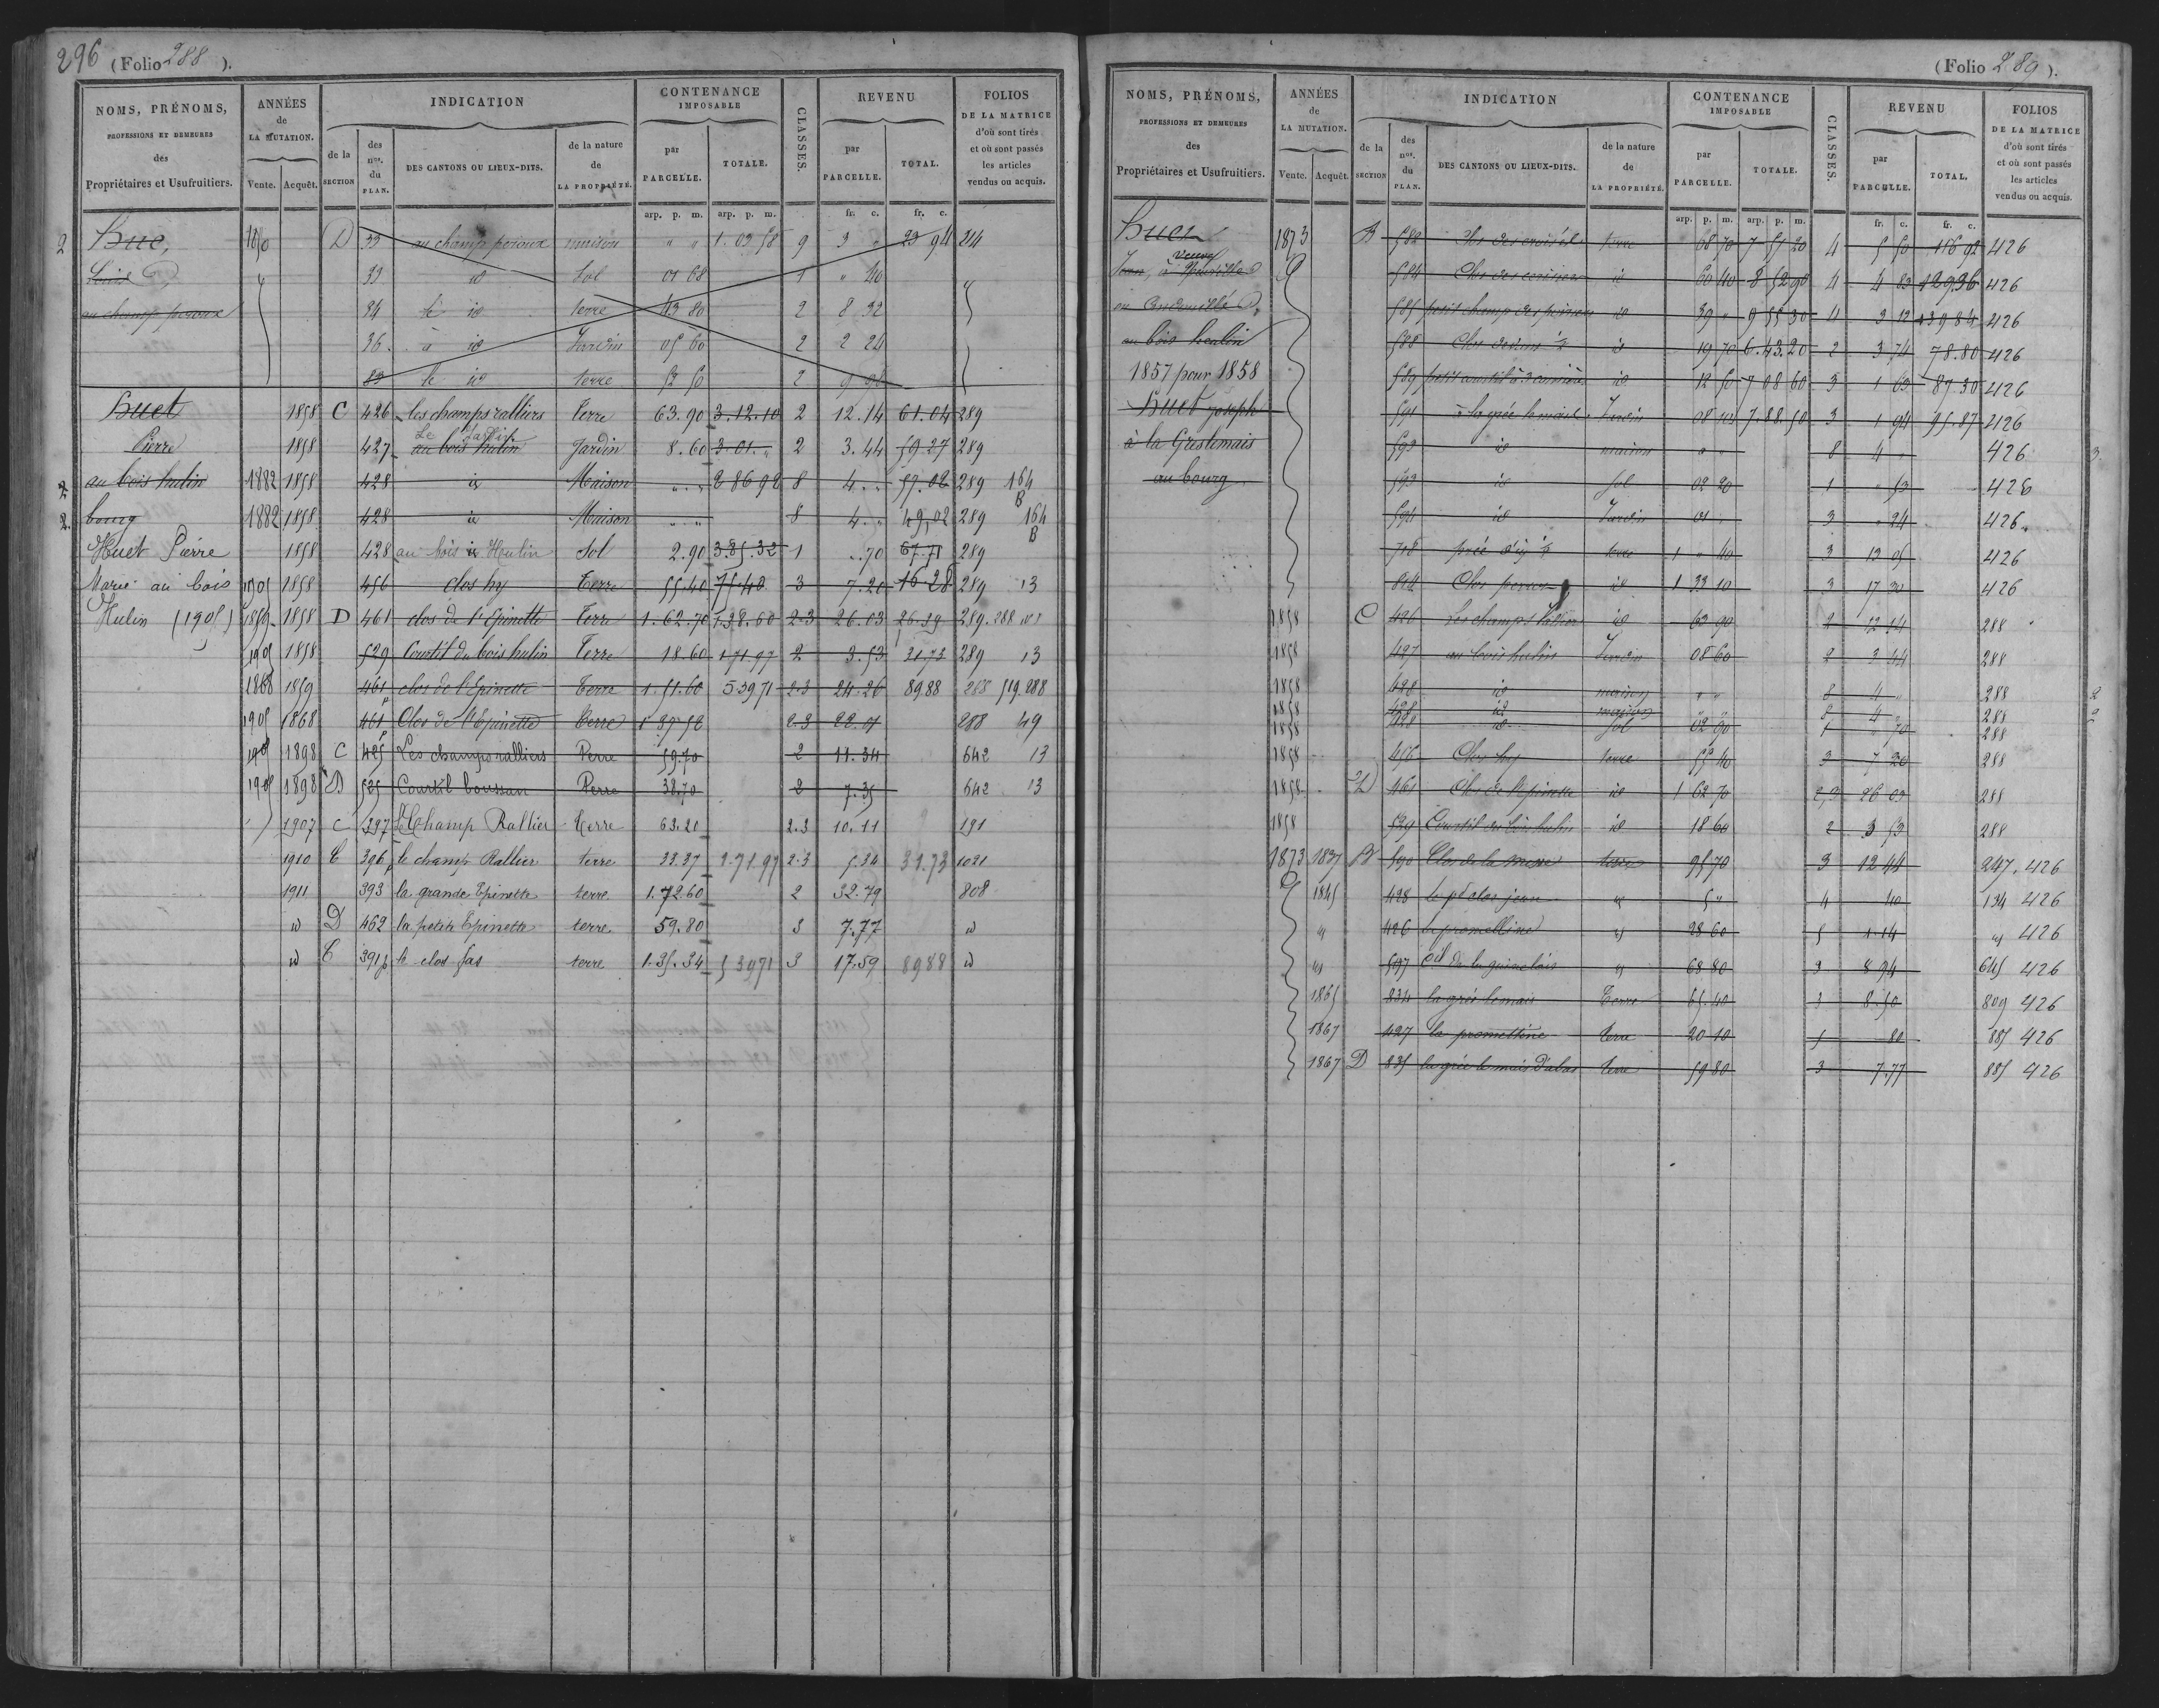 296 (Folio 288 ).
NOMS, PRÉNOMS, PROFESSIONS ET DEMEURES des Propriétaires et Usufruitiers.
ANNÉES de LA MUTATION. Vente. Acquêt.
INDICATION de la SECTION des nos. du PLAN. DES CANTONS OU LIEUX-DITS. de la nature de LA PROPRIÉTÉ.
CONTENANCE IMPOSABLE par PARCELLE. TOTALE.
CLASSES.
REVENU par PARCELLE. TOTAL.
FOLIOS DE LA MATRICE d'où sont tirés et où sont passés les articles vendus ou acquis.
arp. p. m. arp. p. m. fr. c. fr. c.
2 Huc, D 33 au champ poioux maison " " 1. 03 58 9 3 " 23 94 214
33 id Sol 01 68 1 " 40
au champ 34 le id terre 43 80 2 8 32
36. à id Jardin 05 60 2 2 24
83 le id terre 2
Huet 1858 C 426 les champs ralliers Terre 63.90 3.12.10 2 12.14 61.04 289
Pierre 1858 427 au bois hulin Jardin 8.60 3.01. " 2 3.44 59.27 289
au bois hulin 1882 1858 428 id Maison " " 2 86 92 8 4. " 57.02 289 164 B
2 bourg 1882 1858 428 id Maison " " 8 4. " 49,02 289 164 B
Huet Pierre 1858 428 au bois Heulin Sol 2.90 3.85.32 1 .70 67.71 289
Marie au bois 1905 1858 456 clos hy Terre 55.40 75.40 3 7.20 16 28 289 13
Hulin (1905) 1859 1858 D 461 clos de l'Epinette Terre 1.62.70 1.38.60 2-3 26.03 26.39 289. 288
1905 1858 529 Courtil du bois hulin Terre 18.60 1 71.97 2 3.53 31.73 289 13
1868 1859 461 clos de l'Epinette Terre 1.51.60 5.39 71 2-3 24.26 89 88 288 519. 288
1905 1868 461 p Clos de l'Epinette Terre 2-3 288 49
1905 1898 C 425 p Les champs ralliers Terre 59.70 2 11.34 642 13
1905 1898 D 525 Courtil boussan Terre 38.70 2 7.35 642 13
1907 C 397 Le Champ Rallier terre 63.21 2.3 10.11 191
1910 C 396 p le champ Rallier terre 33.37 1.71.97 2-3 5.34 31.73 1021
1911 393 la grande Epinette terre. 1.72.60 2 32.79 808
id D 462 la petite Epinette terre. 59.80 3 7.77 id
id C 391 p le clos terre 1.35.34 5 39 71 3 17.59 89 88 id
(Folio 289 ).
NOMS, PRÉNOMS, PROFESSIONS ET DEMEURES des Propriétaires et Usufruitiers.
ANNÉES de LA MUTATION. Vente. Acquêt.
INDICATION de la SECTION des nos. du PLAN. DES CANTONS OU LIEUX-DITS. de la nature de LA PROPRIÉTÉ.
CONTENANCE IMPOSABLE par PARCELLE. TOTALE.
CLASSES.
REVENU par PARCELLE. TOTAL.
FOLIOS DE LA MATRICE d'où sont tirés et où sont passés les articles vendus ou acquis.
arp. p. m. arp. p. m. fr. c. fr. c.
Huet 1873 B terre 7 51 20 4 5 50 116 92 426
Jean, Veuve 584 id 60 40 8 52 90 4 4 83 129.36 426
585 petit champ id 39 " 9 55 30 4 3 12 139 84 426
au bois heulin 588 id 19 70 6.43.20 2 3 74 78.80 426
1857 pour 1858 589 id 12 50 7 08 60 3 1 63 87.30 426
Huet joseph 591 Jardin 7.88.50 3 1 94 95.87 426
à la Greslemais 593 id maison " " 8 4 " 426 3
au bourg 593 id sol 02 20 1 " 53 426
594 id Jardin 01 " 3 " 24 426
718 terre 1 " 40 3 13 05 426
814 Clos id 1 33 10 3 17 30 426
1858 C 426 Les champs rallier id 63 90 2 12 14 288
1858 427 au bois hulin Jardin 08 60 2 3 44 288
1858 428 id maison " " 8 4 " 288 2
1858 428 id maison " " 8 4 " 288 2
1858 428 id sol 02 90 1 " 70 288
1858 456 Clos hy terre 55 40 3 7 20 288
1858 D 461 Clos de l'Epinette id 1 62 70 2,3 26 03 288
1858 529 Courtil du bois hulin id 18 60 2 3 53 288
1873 1837 B 590 Clos de la terre 95 70 3 12 44 247. 426
1845 428 le pt clos jean id 5 " 4 40 134 426
id 426 la promelline id 28 60 5 1.14 id 426
id 597 id 68 80 3 8 94 645 426
1865 834 la grée lemais Terre 65.40 3 8.50 809 426
1867 427 la promelline terre 20 10 5 80 885 426
1867 D 835 la grée lemais d'abas terre 59 80 3 7.77 885 426